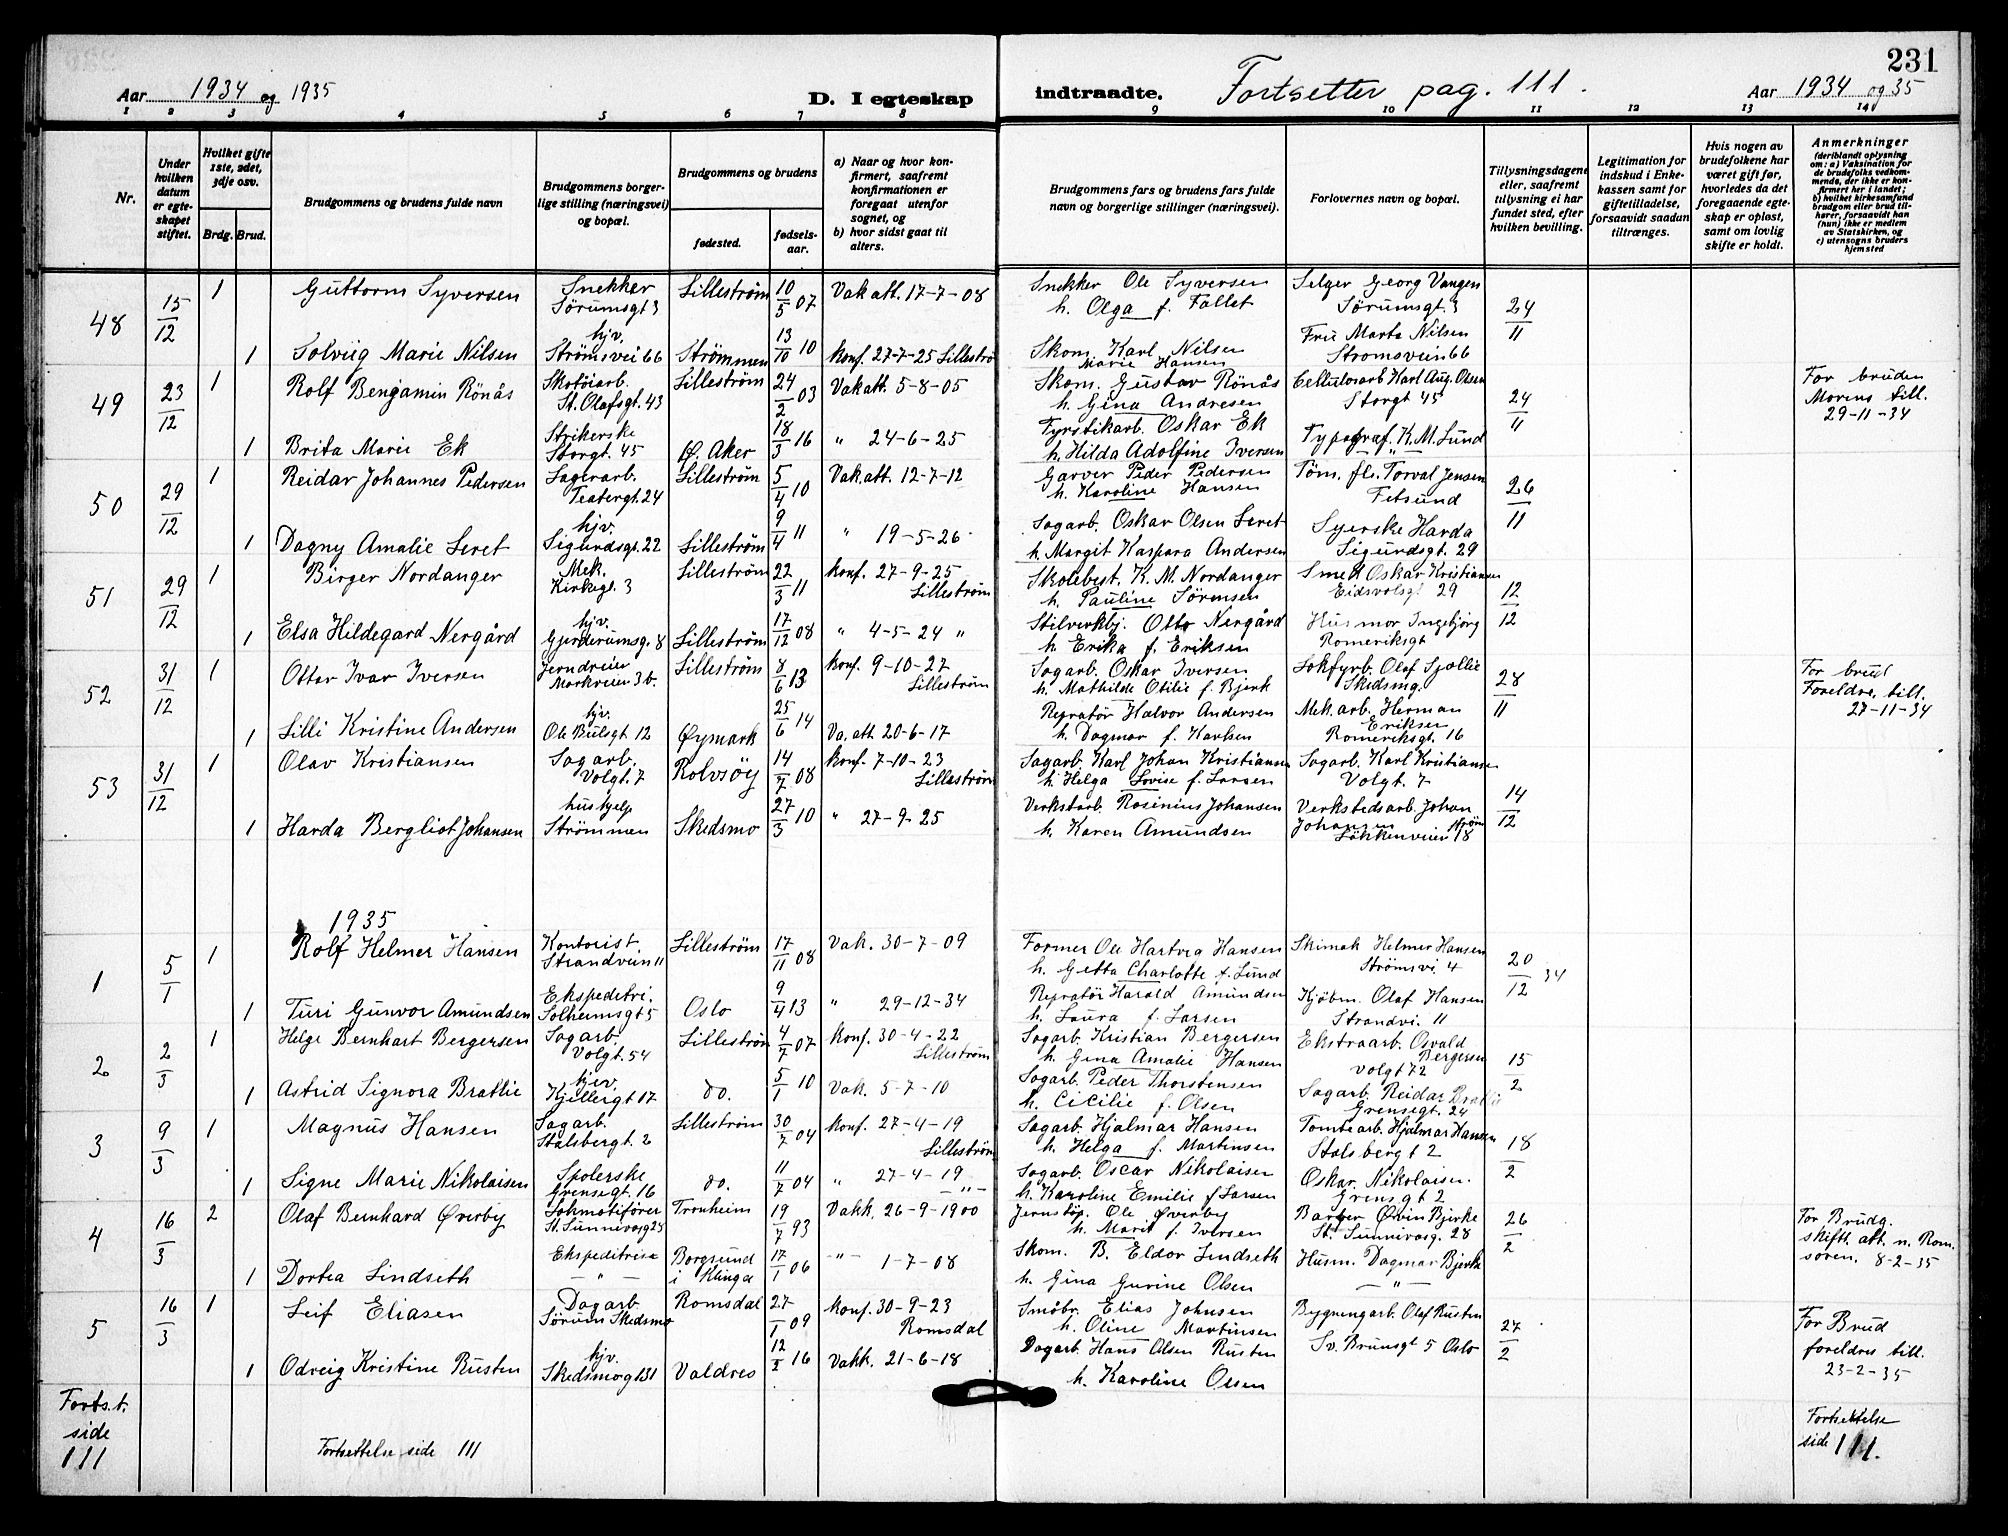 231
Aar 1934 og 1935
D. I egteskap
indtraadte.
Fortsetter pag. 111.
Aar 1934 og 35
1 2 3 4 5 6 7 8 9 10 11 12 13 14
Nr.
Under hvilken datum er egteskapet stiftet.
Hvilket gifte 1ste, 2det, 3dje osv.
Brdg. Brud.
Brudgommens og brudens fulde navn
Brudgommens borgerlige stilling (næringsvei) og bopæl.
Brudgommens og brudens
fødested.
fødselsaar.
a) Naar og hvor konfirmert, saafremt konfirmationen er foregaat utenfor sognet, og
b) hvor sidst gaat til alters.
Brudgommens fars og brudens fars fulde navn og borgerlige stillinger (næringsvei).
Forlovernes navn og bopæl.
Tillysningsdagene eller, saafremt tillysning ei har fundet sted, efter hvilken bevilling.
Legitimation for indskud i Enkekassen samt for giftetilladelse, forsaavidt saadan tiltrænges.
Hvis nogen av brudefolkene har været gift før, hvorledes da det foregaaende egteskap er opløst, samt om lovlig skifte er holdt.
Anmerkninger
(deriblandt oplysning om: a) Vaksination for de brudefolks vedkommende, der ikke er konfirmert her i landet; b) hvilket kirkesamfund brudgom eller brud tilhører, forsaavidt han (hun) ikke er medlem av Statskirken, og c) utensogns bruders hjemsted
48 15/12 1 Guttorm Syversen Snekker Sørumsgt 3 Lilleström 10/5 07 Vak att. 17-7-08 Snekker Ole Syversen h. Olga f. Fallet Selger Georg Vangen Sørumsgt. 3 24/11
1 Solveig Marie Nilsen hjv. Strömsvei 66 Strömmen 13/10 10 konf. 27-7-25 Lillestrø Skom. Karl Nilsen Marie Hansen Fru Marta Nilsen Stromsvein 66
49 23/12 1 Rolf Benjamin Rönås Skotöiarb. St. Olafsgt. 43 Lilleström 24/2 03 Vak att. 5-8-05 Skom. Gustav Rönås h. Gina Andresen Cellulosarb Karl Aug. Olsen Storgt 45 24/11 For bruden Morens till. 29-11-34
1 Brita Marie Ek Strikerske Storgt. 45 Ø. Aker 18/3 16 " 24-6-25 Fyrstikarb. Oskar Ek h. Hilda Adolfine Iversen Typograf. K. M. Lund "
50 29/12 1 Reidar Johannes Pedersen Lagerarb. Teatergt. 24 Lilleström 5/4 10 Vak. att. 12-7-12 Garver Peder Pedersen h. Karoline Hansen Töm. fl. Torval Jensen Fetsund 26/11
1 Dagny Amalie Seret hjv. Sigurdsgt. 22 Lilleström 9/4 11 " 19-5-26 Sagarb. Oskar Olsen Seret h. Margit Kaspara Andersen Syerske Harda Sigurdsgt. 29
51 29/12 1 Birger Nordanger Mek. Kirkegt. 3 Lilleström 22/3 11 konf. 27-9-25 Lilleström Skolebest. K. M. Nordanger h. Pauline Sörensen Smed Oskar Kristiansen Eidsvolsgt 29 12/12
1 Elsa Hildegard Nergård hjv. Gjerdrumsg. 8 Lilleström 17/12 08 " 4-5-24 " Stilverkbj. Otto Nergård h. Erika f. Eriksen Husmor Ingebjörg Romeriksgt
52 31/12 1 Ottar Ivar Iversen Jerndreier Markveien 3b. Lilleström 8/6 13 konf. 9-10-27 Lilleström Sagarb. Oskar Iversen h. Mathilde Otilie f. Bjerk Lokfyrb. Olaf Sjøllie Skedsmg. 28/11 For brud Foreldre till. 27-11-34
1 Lilli Kristine Andersen hjv. Ole Bulsgt 12 Øymark 25/6 14 Va. att. 20-6-17 Repratör Halvor Andersen h. Dagmar f. Karlsen Mek. arb. Herman Eriksen Romeriksgt. 16
53 31/12 1 Olav Kristiansen Sagarb. Volgt. 7 Rolvsöy 14/7 08 konf. 7-10-23 Lilleström Sagarb. Karl Johan Kristiansen h. Helga Lovise f. Larsen Sagarb. Karl Kristiansen Volgt. 7 14/12
1 Harda Bergliot Johansen hushjelp Strömmen Skedsmo 27/3 10 " 27-9-25 Verkstarb. Rosinius Johansen h. Karen Amundsen Verkstedsarb. Johan Johansen Strøm Løkkenveien 18
1935
1 5/1 1 Rolf Helmer Hansen Kontorist. Strandvein 11 Lilleström 17/11 08 Vak. 30-7-09 Former Ole Hartvig Hansen h. Getta Charlotte f. Lund Skimak Helmer Hansen Strømsvi. 4 20/12 34
1 Turi Gunvor Amundsen Ekspeditri. Solheimsgt 5 Oslo 9/4 13 " 29-12-34 Repratör Harald Amundsen h. Laura f. Larsen Kjöbm. Olaf Hansen Strandvi. 11
2 2/3 1 Helge Bernhart Bergersen Sagarb. Volgt. 54 Lilleström 4/7 07 konf. 30-4-22 Lilleström Sagarb. Kristian Bergersen h. Gina Amalie Hansen Ekstraarb. Osvald Bergersen Volgt 72 15/2
1 Astrid Signora Bratlie hjv. Kjellergt 17 do. 5/1 10 Vak. 5-7-10 Sagarb. Peder Thorstensen h. Cicilie f. Olsen Sagarb. Reidar Bratlie Grensegt. 24
3 9/3 1 Magnus Hansen Sagarb. Stalsbergt. 2 Lilleström 30/7 04 konf. 27-4-19 Lilleström Sagarb. Hjalmar Hansen h. Helga f. Martinsen Tomtearb. Hjalmar Hansen Stalsbergt 2 18/2
1 Signe Marie Nikolaisen Spolerske Grensegt. 16 do. 11/7 04 " 27-4-19 -"- Sagarb. Oscar Nikolaisen h. Karoline Emilie f Larsen Oskar. Nikolaisen. Grensgt 2
4 16/3 2 Olaf Bernhard Øverby Lokmotiförer St. Sunnivasg 25 Tronheim 19/7 93 Vakk. 26-9-1900 Jernstøp. Ole Øverby h. Marit f. Iversen Barber Øvin Bjerke St. Sunnivasg. 28 26/2 For Brudg. skift. att. n. Romsøren. 8-2-35
1 Dortea Lindseth Ekspeditrise -"- Borgsund i Klinga 17/1 06 -"- 1-7-08 Skom. B. Eldor Lindseth h. Gina Gurine Olsen Husm. Dagmar Bjerke -"-
5 16/3 1 Leif Eliasen Dagarb Sörum Skedsmo Romsdal 27/1 09 konf. 30-9-23 Romsdal Småbr. Elias Johnsen h. Oline Martinsen Bygningarb. Olaf Rusten Sv. Brunsgt 5 Oslo 27/2 For Brud foreldres till. 23-2-35
1 Odveig Kristine Rusten hjv. Skedsmog 131 Valdres 12/2 16 Vakk. 21-6-18 Dagarb. Hans Olsen Rusten h. Karoline Olsen
Forts.t. side 111
Fortsettelse side 111
Fortsettelse side 111.